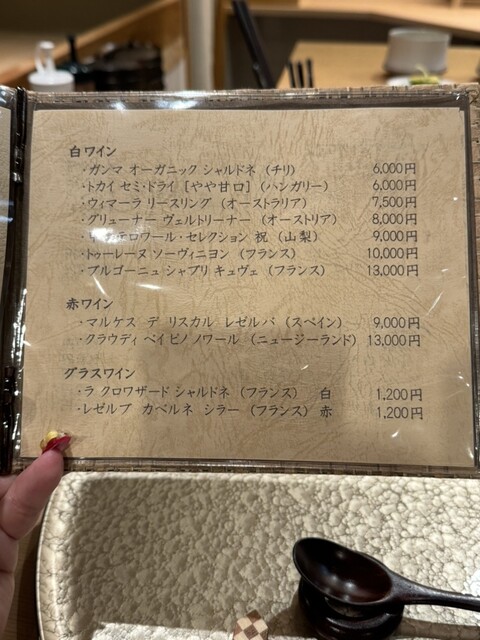 白ワイン
・ガンマ オーガニック シャルドネ (チリ) 6,000円
・トカイ セミ・ドライ [やや甘口] (ハンガリー) 6,000円
・ウィマーラ リースリング (オーストラリア) 7,500円
・グリューナー ヴェルトリーナー (オーストリア) 8,000円
テロワール・セレクション 祝 (山梨) 9,000円
・トゥーレーヌ ソーヴィニヨン (フランス) 10,000円
・ブルゴーニュ シャブリ キュヴェ (フランス) 13,000円
赤ワイン
・マルケス デ リスカル レゼルバ (スペイン) 9,000円
・クラウディ ベイ ピノ ノワール (ニュージーランド) 13,000円
グラスワイン
・ラ クロワザード シャルドネ (フランス) 白 1,200円
・レゼルブ カベルネ シラー (フランス) 赤 1,200円